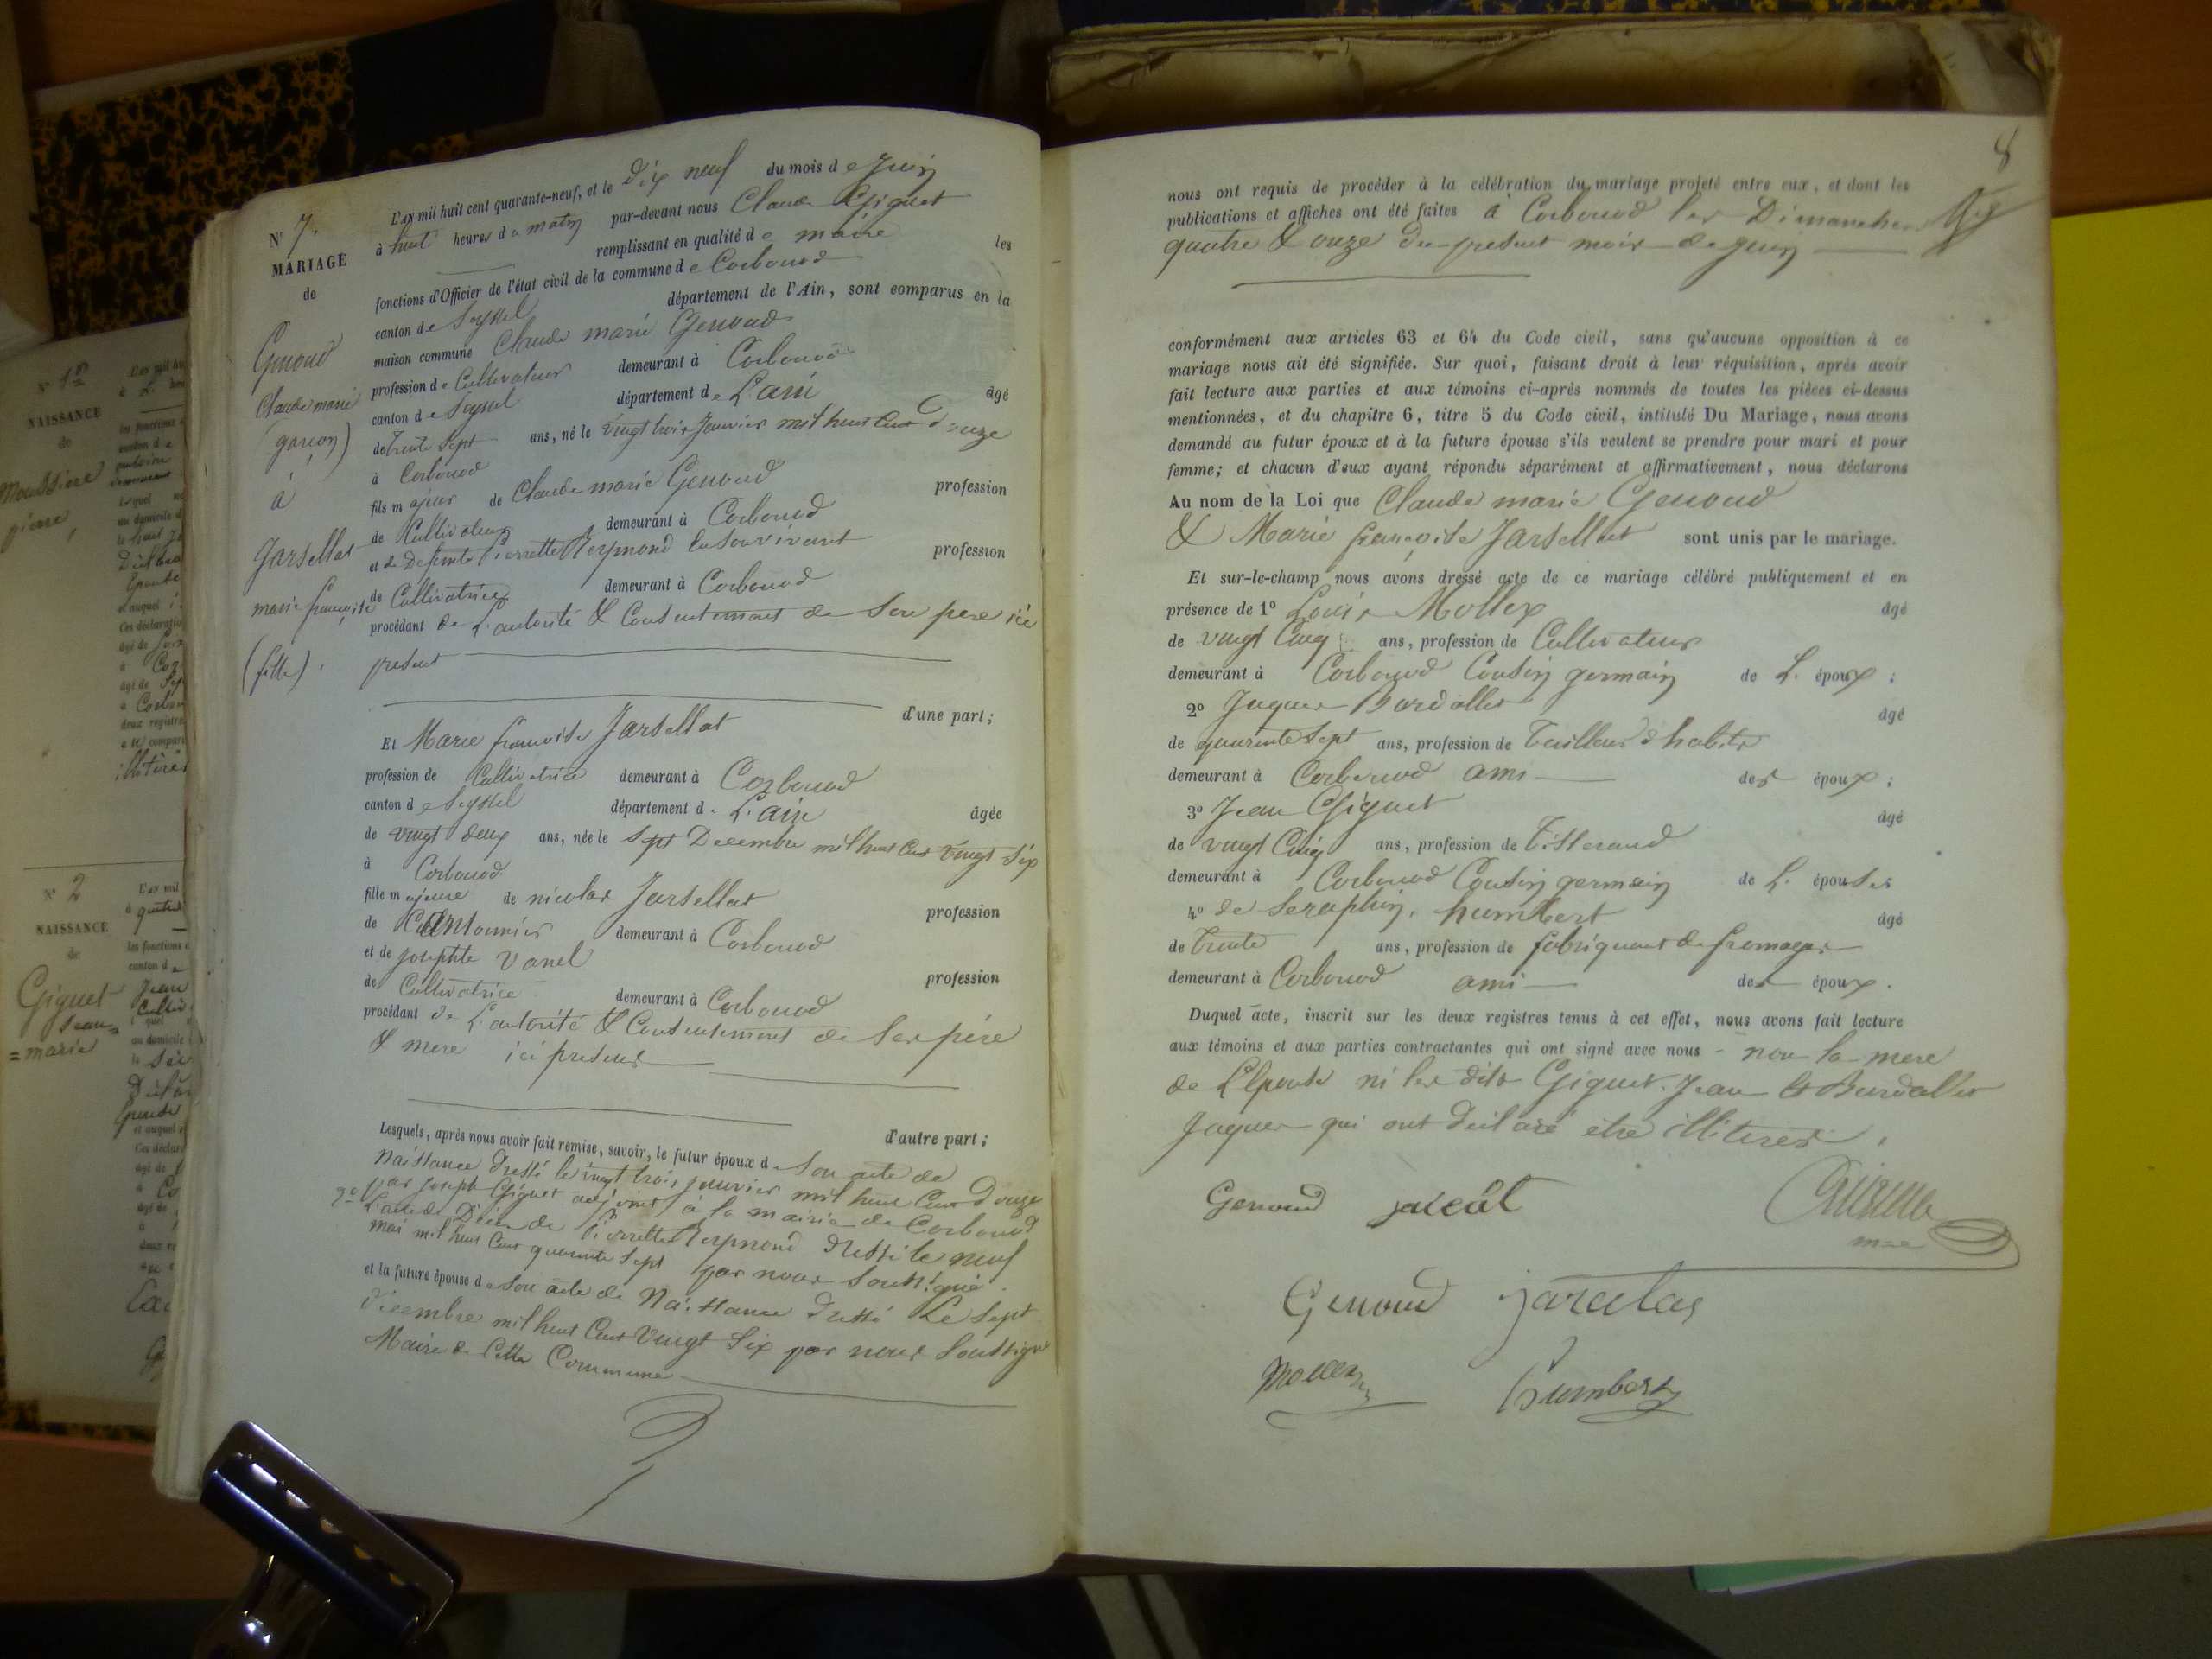 N° 7.
MARIAGE
de
Genoud
Claude marie
(garçon)
à
Jarsellat
marie françoise
(fille).
L'an mil huit cent quarante-neuf, et le dix neuf du mois de Juin
à huit heures du matin par-devant nous Claude Giguet
remplissant en qualité de maire les
fonctions d'Officier de l'état civil de la commune de Corbonod
canton de Seyssel département de l'Ain, sont comparus en la
maison commune Claude marie Genoud
profession de Cultivateur demeurant à Corbonod
canton de Seyssel département de L'ain âgé
de trente sept ans, né le vingt trois Janvier mil huit Cent douze
à Corbonod
fils majeur de Claude marie Genoud profession
de Cultivateur demeurant à Corbonod
et de Defunte Pierrette Reymond En Son vivant profession
de Cultivatrice demeurant à Corbonod
procédant de L'autorité & Consentement de Son pere ici
present
d'une part;
Et Marie françoise Jarsellat
profession de Cultivatrice demeurant à Corbonod
canton de Seyssel département de L'ain âgée
de vingt deux ans, née le Sept Decembre mil huit Cent vingt Six
à Corbonod
fille majeure de nicolas Jarsellat profession
de Cantonnier demeurant à Corbonod
et de josephte Vanel profession
de Cultivatrice demeurant à Corbonod
procédant de L'autorité & Consentement de Ses pére
& mere ici presens
d'autre part;
Lesquels, après nous avoir fait remise, savoir, le futur époux de Son acte de
Naissance dressé le vingt trois janvier mil huit Cent douze
par joseph Giguet adjoint à la mairie de Corbonod
2° L'acte de Décès de Pierrette Reymond dressé le neuf
mai mil huit Cent quarante Sept par nous Soussigné
et la future épouse de Son acte de Naissance dressé Le Sept
Décembre mil huit Cent Vingt Six par nous Soussigné
Maire de Cette Commune
8
nous ont requis de procéder à la célébration du mariage projeté entre eux, et dont les
publications et affiches ont été faites à Corbonod les Dimanches
quatre & onze du present mois de Juin
conformément aux articles 63 et 64 du Code civil, sans qu'aucune opposition à ce
mariage nous ait été signifiée. Sur quoi, faisant droit à leur réquisition, après avoir
fait lecture aux parties et aux témoins ci-après nommés de toutes les pièces ci-dessus
mentionnées, et du chapitre 6, titre 5 du Code civil, intitulé Du Mariage, nous avons
demandé au futur époux et à la future épouse s'ils veulent se prendre pour mari et pour
femme; et chacun d'eux ayant répondu séparément et affirmativement, nous déclarons
Au nom de la Loi que Claude marie Genoud
& Marie françoise Jarsellat sont unis par le mariage.
Et sur-le-champ nous avons dressé acte de ce mariage célébré publiquement et en
présence de 1° Louis Mollex âgé
de vingt Cinq ans, profession de Cultivateur
demeurant à Corbonod Cousin germain de L. époux;
2° Jaques Burdallet âgé
de quarante Sept ans, profession de Tailleur d'habits
demeurant à Corbonod ami des époux;
3° Jean Giguet âgé
de vingt Cinq ans, profession de Tisserand
demeurant à Corbonod Cousin germain de L. épouse;
4° de Seraphin humbert âgé
de Trente ans, profession de fabriquant de fromages
demeurant à Corbonod ami des époux.
Duquel acte, inscrit sur les deux registres tenus à cet effet, nous avons fait lecture
aux témoins et aux parties contractantes qui ont signé avec nous - non la mere
de L'Epouse ni les dits Giguet Jean & Burdallet
Jaques qui ont déclaré etre illitirés.
Genoud
Genoud
Mollex
humbert
N° 1er
NAISSANCE
de
Moussiere
pierre
N° 2
NAISSANCE
de
Giguet
Jean=
=marie